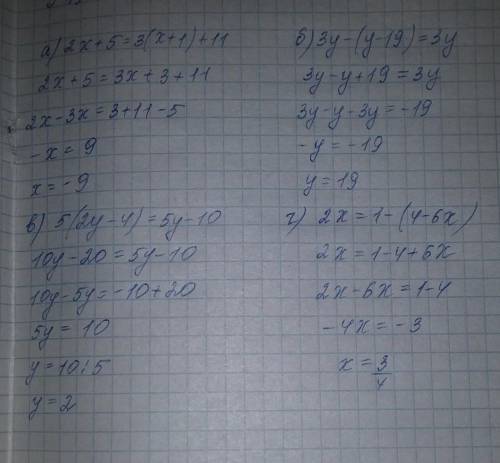 а) 2x+5=3(x+1)+11
2x+5=3x+3+11
2x-3x=3+11-5
-x=9
x=-9
б) 3y-(y-19)=3y
3y-y+19=3y
3y-y-3y=-19
-y=-19
y=19
в) 5(2y-4)=5y-10
10y-20=5y-10
10y-5y=-10+20
5y=10
y=10:5
y=2
г) 2x=1-(4-6x)
2x=1-4+6x
2x-6x=1-4
-4x=-3
x=3/4